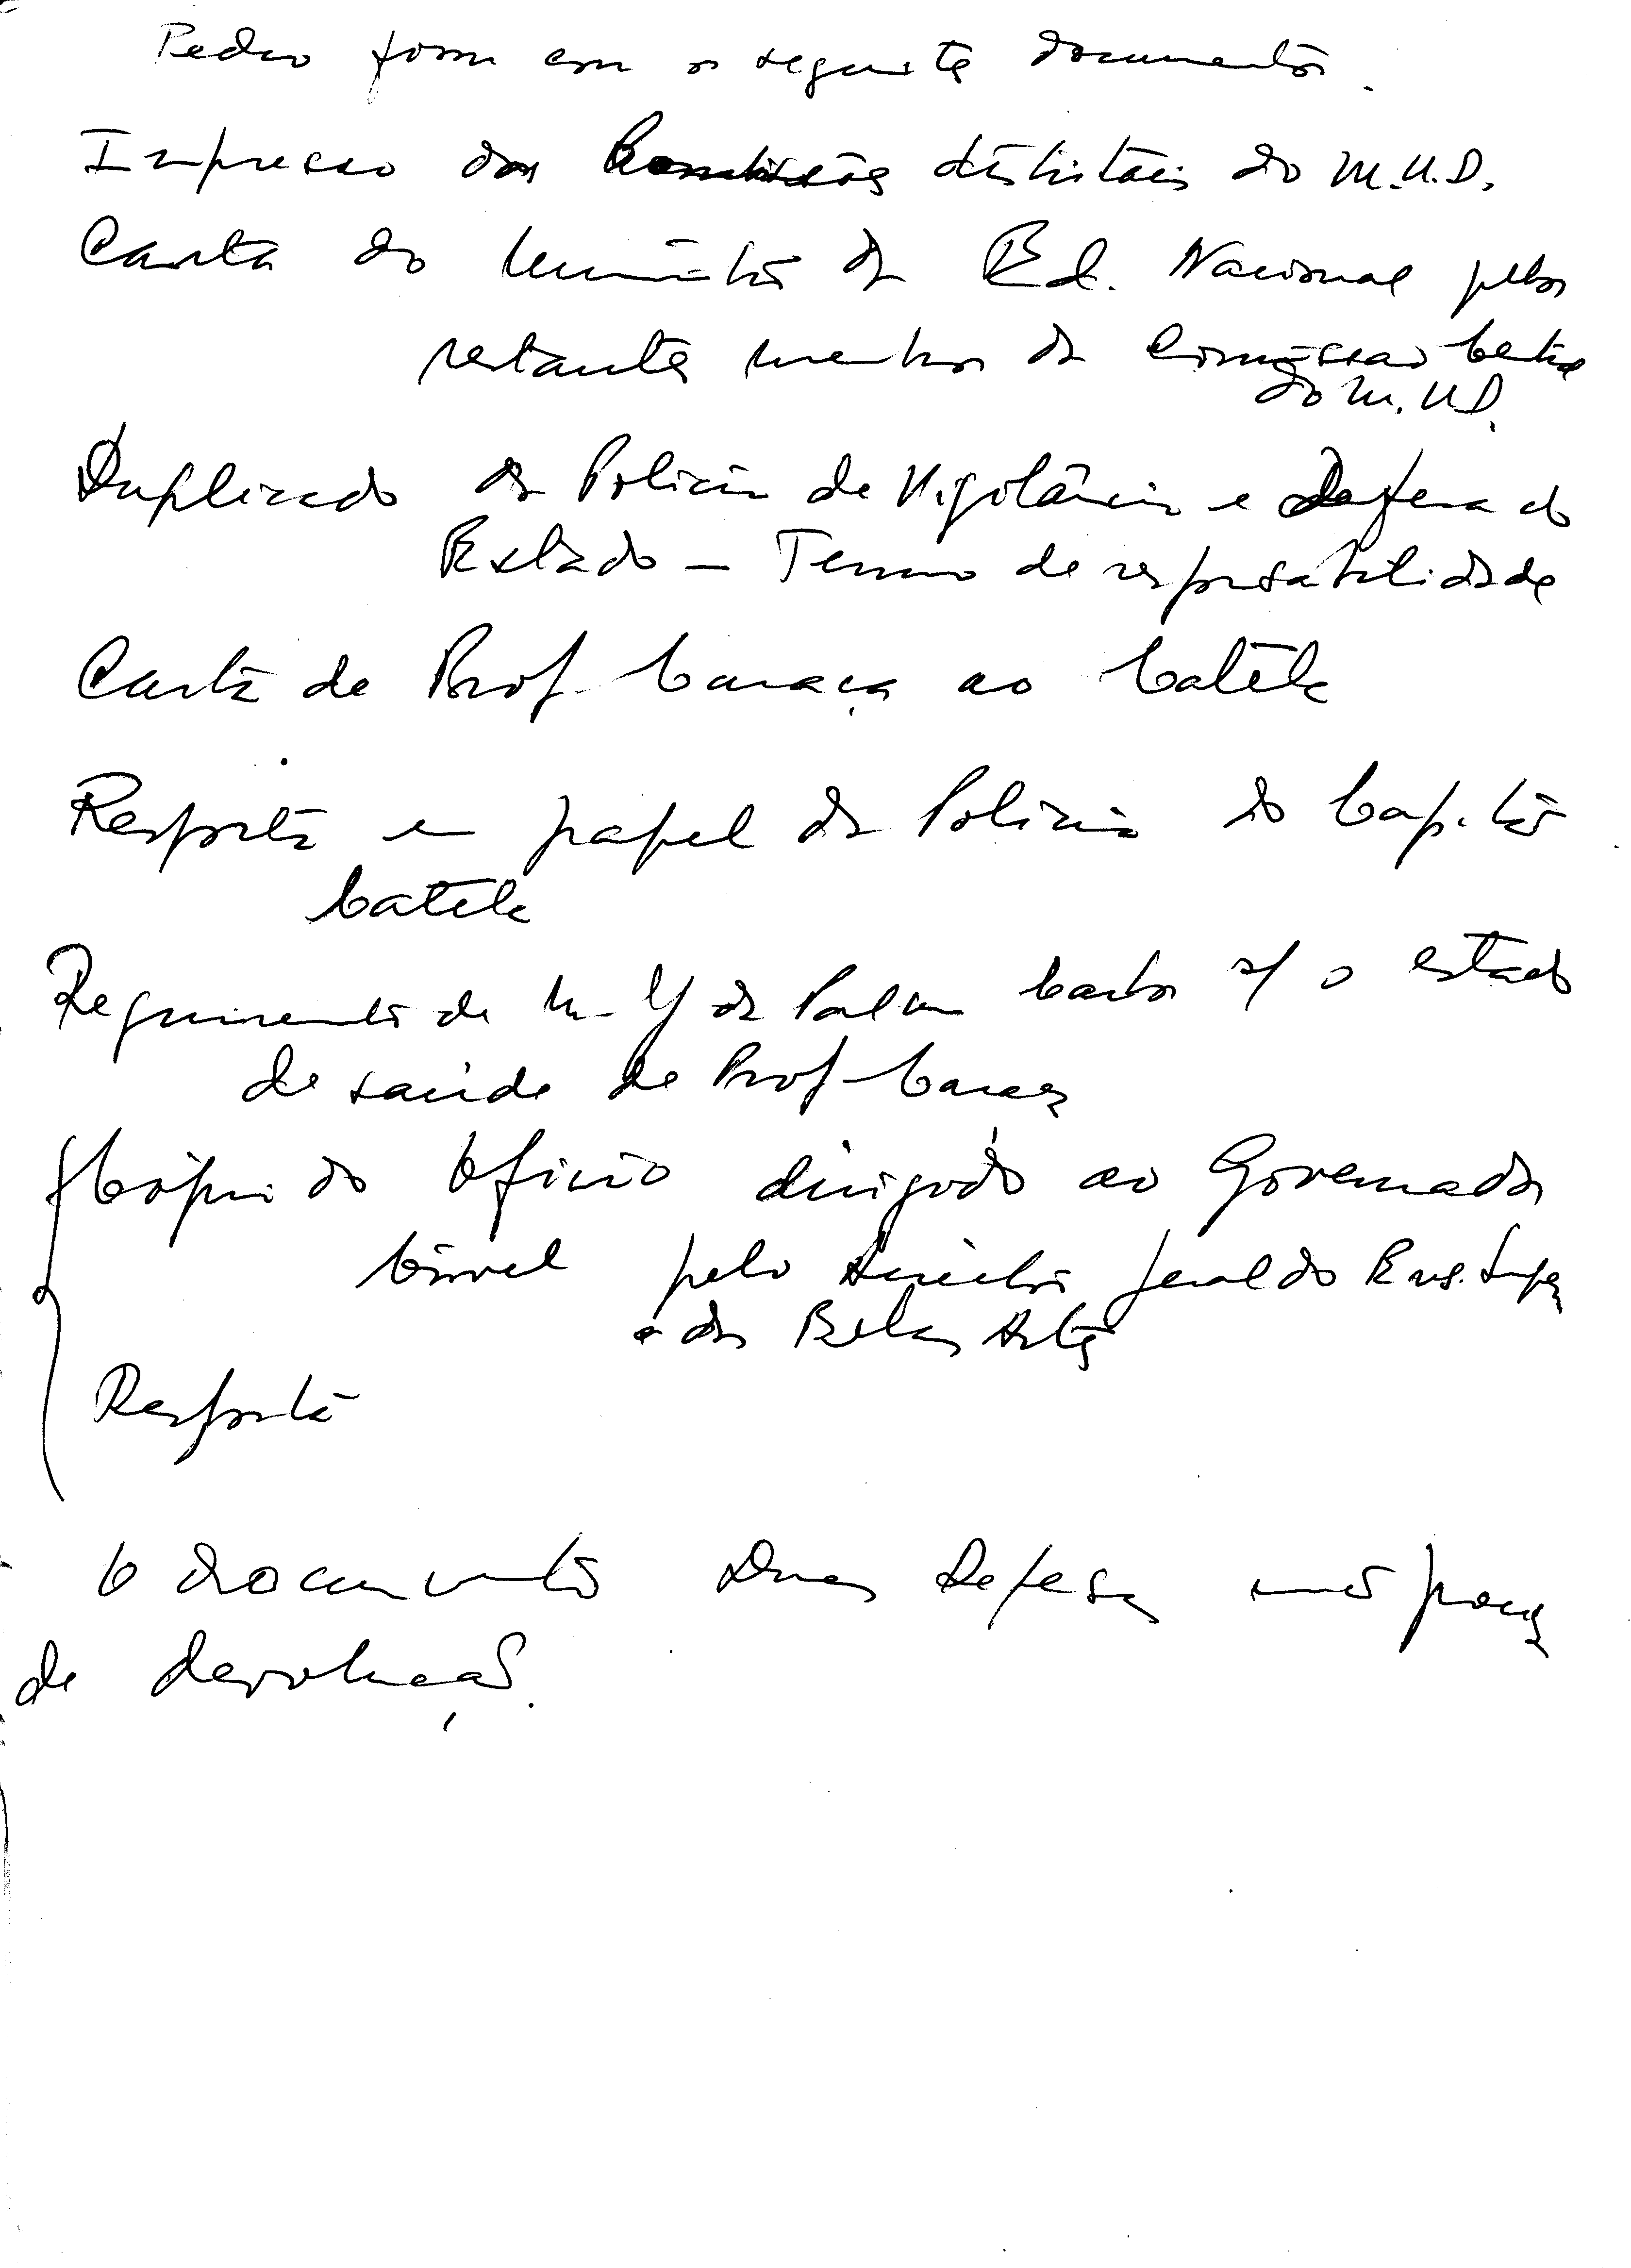 Pedro ficou com os seguintes documentos.
Impresso das Comissões distritais do M.U.D.
Carta do Ministro da Ed. Nacional pelos
restantes membros da Comissão Central
do M.U.D.
Duplicado da Policia de Vigilância e Defesa do
Estado – Termo de responsabilidade
Carta de Prof. Caraça ao Catela
Resposta em papel da Policia do Capitão
Catela
Requerimento de da Carlos s/ o estado
de saúde de Prof. Caraça
Cópia do Oficio dirigido ao Governador
Civil pelo Director Geral do Ens. Super
e das Belas Artes
Resposta
O documento Duas Defesas não
de devolução.